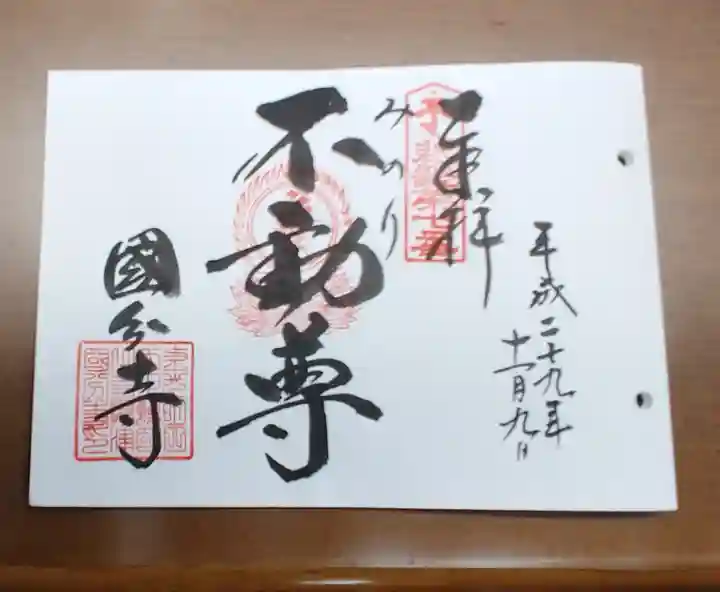 平成二十九年
十一月九日
奉拝
みのり
不動尊
國分寺